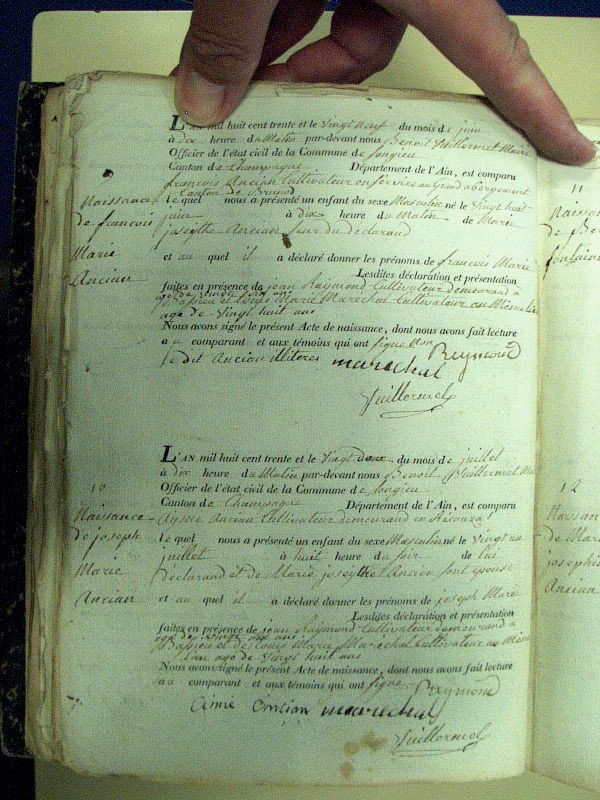 L'AN mil huit cent trente et le vingt neuf du mois de juin
à dix heure du Matin par-devant nous Benoit Vuillermet Maire
Officier de l'état civil de la Commune de Songieu
Canton de Champagne Département de l'Ain, est comparu
françois Ancian Cultivateur en service au grand abergement
Canton de
Naissance
de françois
Marie
Ancian
le quel nous a présenté un enfant du sexe Masculin né le vingt huit
juin à dix heure du Matin de Marie
josephte Ancian Seur du declarand
et au quel il a déclaré donner les prénoms de françois Marie
Lesdites déclaration et présentation
faites en présence de jean Raymond Cultivateur demeurand à
et Louis Marie Marechal Cultivateur au
age de vingt huit ans
Nous avons signé le présent Acte de naissance, dont nous avons fait lecture
au comparant et aux témoins qui ont signé Non
le dit Ancian illiteres marechal Reymond
Vuillermet
L'AN mil huit cent trente et le vingt deux du mois de juillet
à dix heure du Matin par-devant nous Benoit Vuillermet
Officier de l'état civil de la Commune de Songieu
Canton de Champagne Département de l'Ain, est comparu
Aysme Ancian Cultivateur demeurand en
10
Naissance
de joseph
Marie
Ancian
le quel nous a présenté un enfant du sexe Masculin né le vingt un
juillet à huit heure du soir de lui
Déclarand et de Marie josephte Ancian sont épouse
et au quel il a déclaré donner les prénoms de joseph Marie
Lesdites déclaration et présentation
faites en présence de jean Raymond Cultivateur demeurand à
et de Louis Marie Marechal Cultivateur au
age de vingt huit ans
Nous avons signé le présent Acte de naissance, dont nous avons fait lecture
au comparant et aux témoins qui ont signé Reymond
Ancian marechal
Vuillermet
11
12